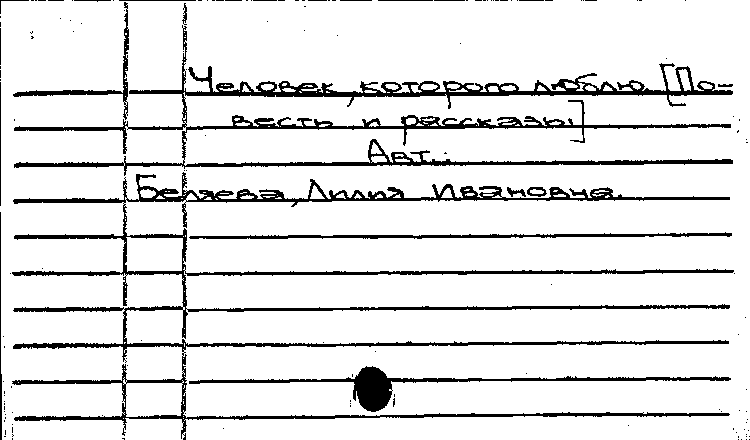 Человек, которого люблю. [По-
весть и рассказы]
Авт.:
Беляева, Лилия Ивановна.